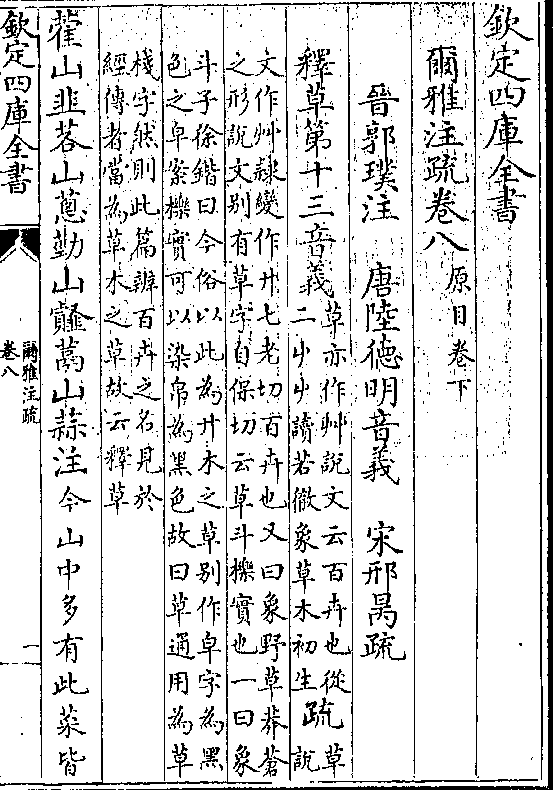 欽定四庫全書
爾雅注疏卷八 原目卷下
晉郭璞注 唐陸德明音義 宋邢昺疏
釋草第十三音義
草亦作艸說文云百卉也從
二屮屮讀若徹象草木初生
疏
草
說
文作艸隸變作廾七老切百卉也又曰象野草莽蒼
之形說文别有草字自保切云草斗櫟實也一曰象
斗子徐鍇曰今俗以此為廾木之草别作皁字為黑
色之皁案櫟實可以染帛為黑色故曰草通用為草
棧字然則此篇辨百卉之名見於
經傳者當為草木之草故云釋草
藿山韭茖山蔥勤山䪥蒚山蒜注今山中多有此菜皆
欽定四庫全書
爾雅注疏
卷八
一